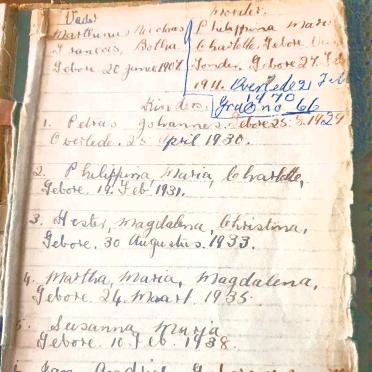 Vader
Marthinus Nicolaas
Francois, Botha
Gebore 20 Junie 1907
Moeder.
Philippina Maria
Charlotte. Gebore
Gebore 27 Feb
1911. Overlede 21 Feb
1970
Graf no 66
Kinders.
1. Petrus Johannes. Gebore 25.3.1929
Overlede. 25 April 1930.
2. Philippina, Maria, Charlotte,
Gebore. 19. Feb. 1931.
3. Hester, Magdalena, Christina,
Gebore. 30 Augustus. 1933.
4. Martha, Maria, Magdalena,
Gebore. 24. Maart. 1935.
5. Susanna Maria
Gebore. 10 Feb. 1938.